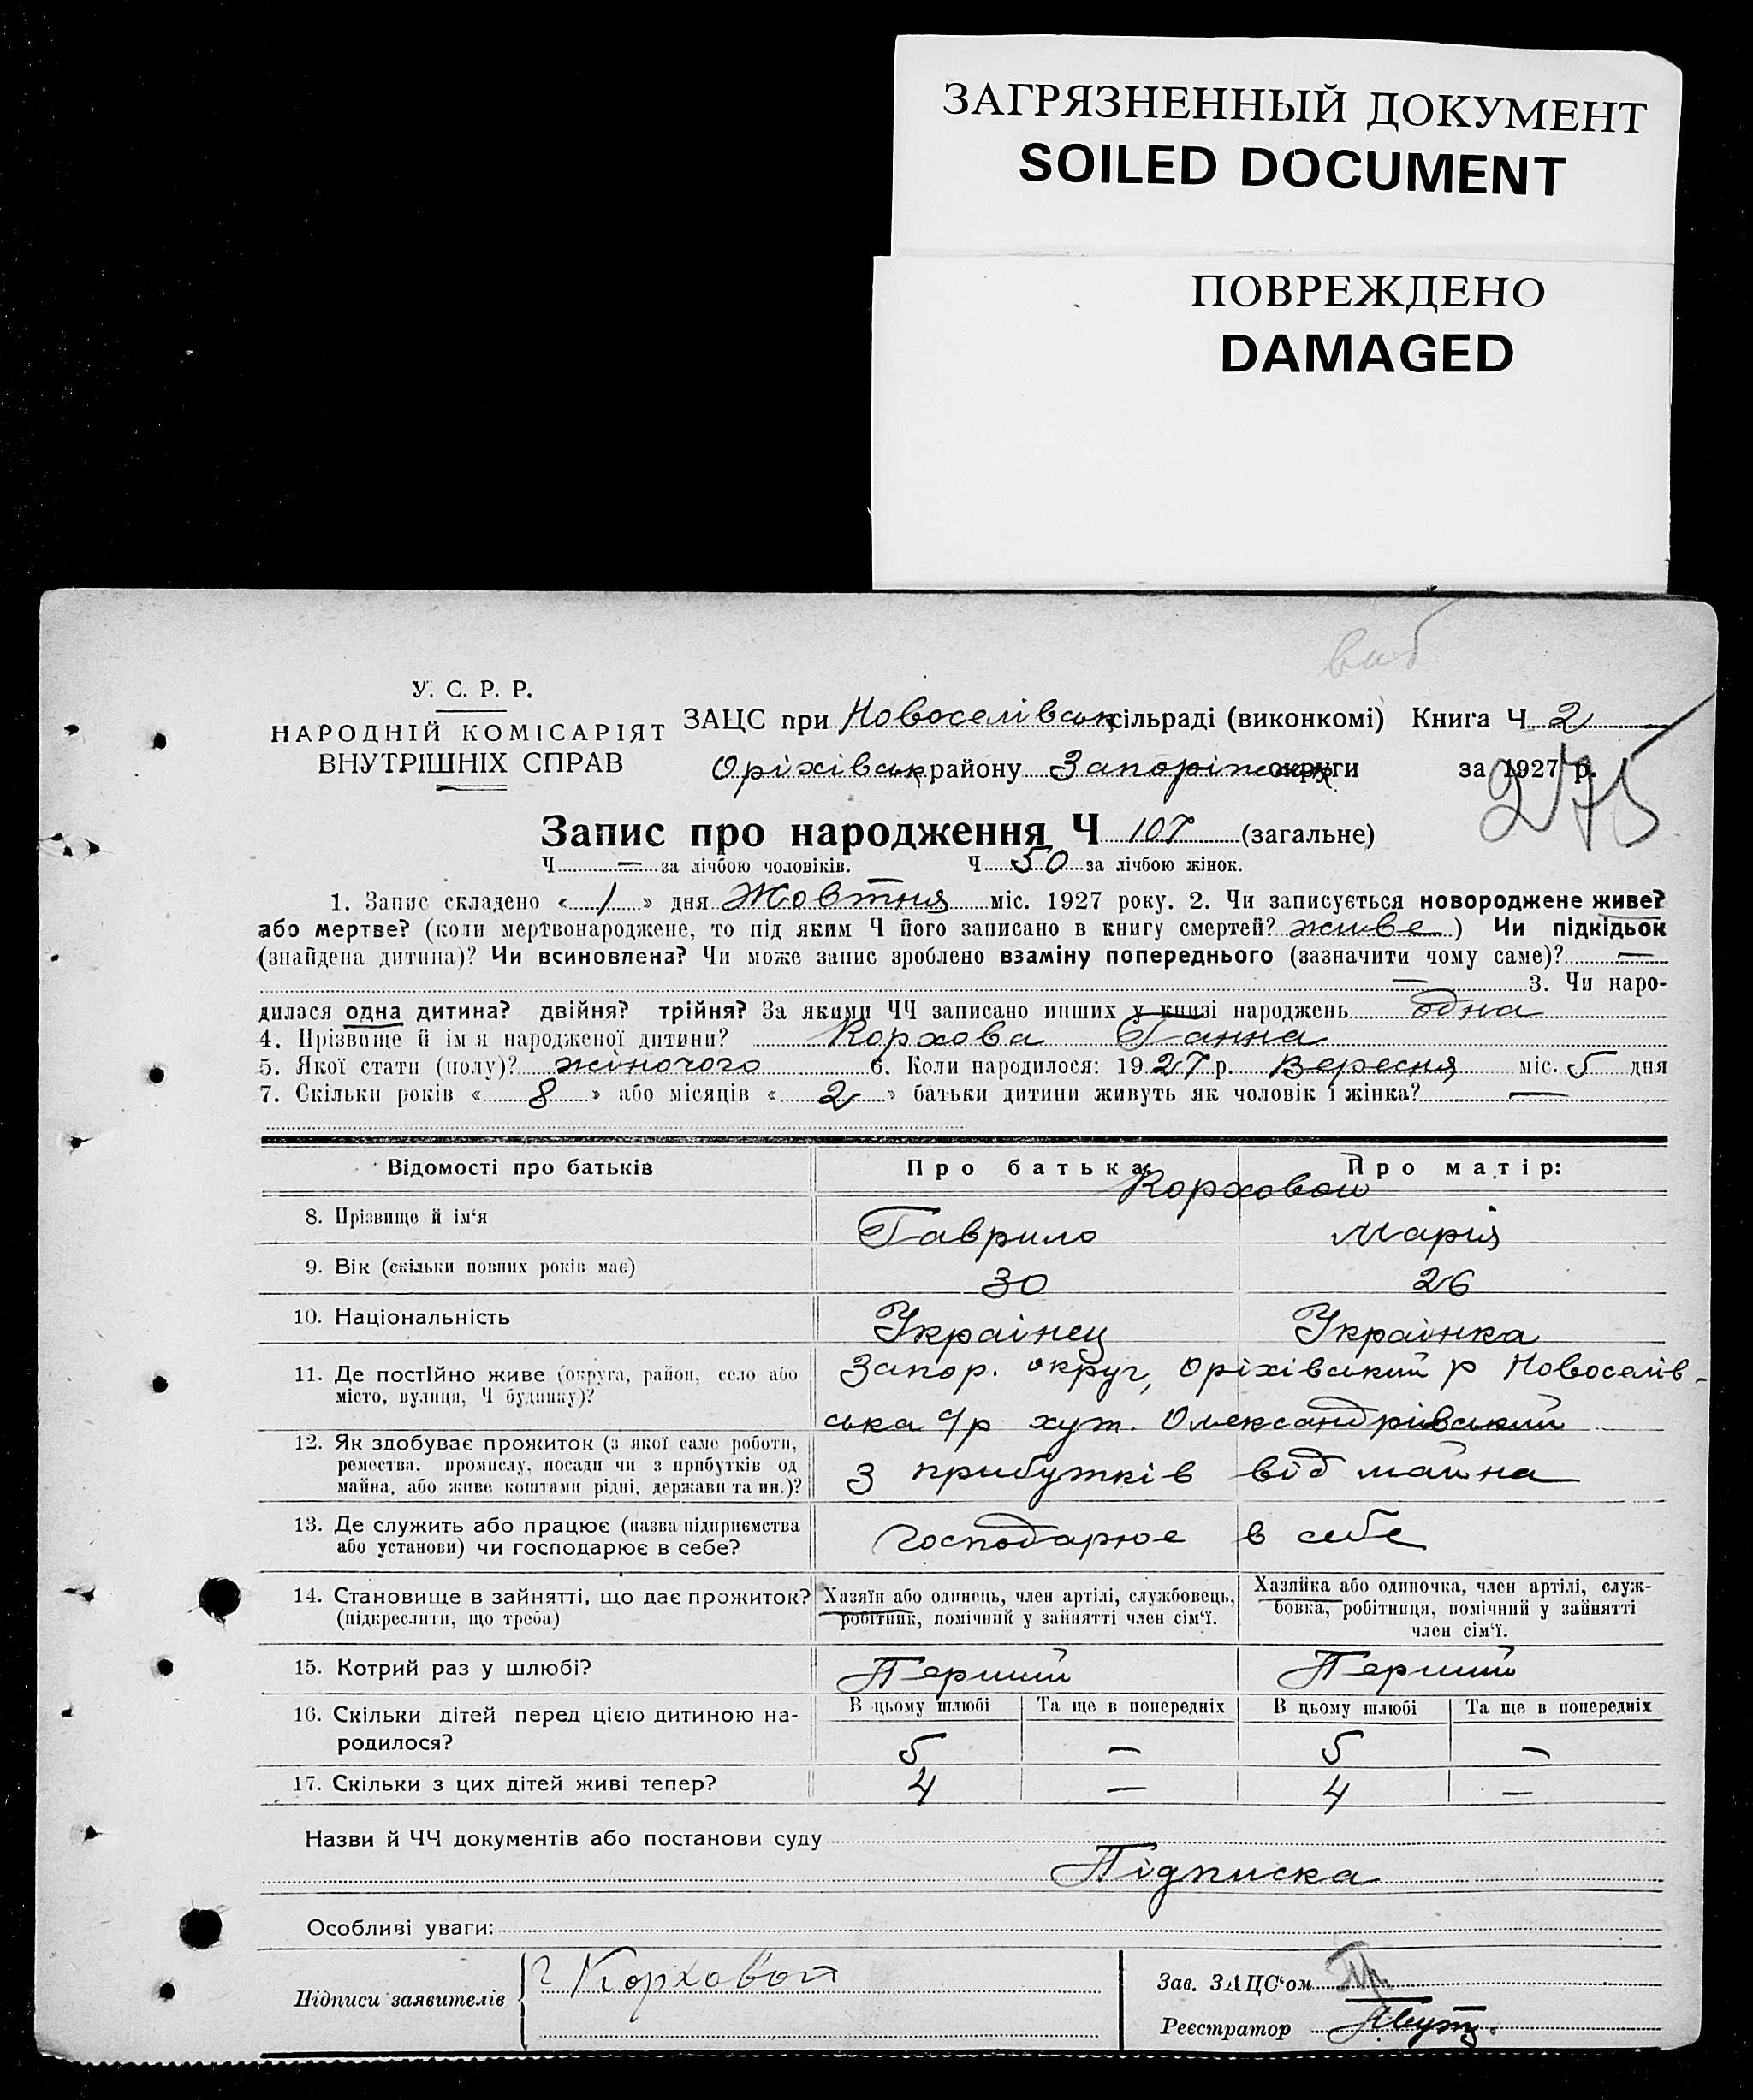 ЗАГРЯЗНЕННЫЙ ДОКУМЕНТ
SOILED DOCUMENT
ПОВРЕЖДЕНО
DAMAGED
У. С. Р. Р.
НАРОДНІЙ КОМІСАРІЯТ
ВНУТРІШНІХ СПРАВ
ЗАЦС при Новоселівськ сільраді (виконкомі) Книга Ч 2
Оріхівськ району Запоріжськ округи за 1927 р.
275
Запис про народження Ч 107 (загальне)
Ч — за лічбою чоловіків. Ч 50 за лічбою жінок.
1. Запис складено « 1 » дня Жовтня міс. 1927 року. 2. Чи записується новороджене живе?
або мертве? (коли мертвонароджене, то під яким Ч його записано в книгу смертей? живе) Чи підкідьок
(знайдена дитина)? Чи всиновлена? Чи може запис зроблено взаміну попереднього (зазначити чому саме)? —
— 3. Чи наро-
дилася одна дитина? двійня? трійня? За якими ЧЧ записано инших у книзі народжень одна
4. Прізвище й ім'я народженої дитини? Корхова Ганна
5. Якої стати (полу)? жіночого 6. Коли народилося: 1927 р. Вересня міс. 5 дня
7. Скільки років « 8 » або місяців « 2 » батьки дитини живуть як чоловік і жінка? —
Відомості про батьків Про батька: Про матір:
Корховои
8. Прізвище й ім'я Гаврило Марія
9. Вік (скільки повних років має) 30 26
10. Національність Украінец Украінка
11. Де постійно живе (округа, район, село або Запор. округ, Оріхівський р Новоселів-
місто, вулиця, Ч будинку)? ська с/р хут. Олександрівський
12. Як здобуває прожиток (з якої саме роботи,
ремества, промислу, посади чи з прибутків од з прибутків від майна
майна, або живе коштами рідні, держави та ин.)?
13. Де служить або працює (назва підприємства господарює в себе
або установи) чи господарює в себе?
14. Становище в зайнятті, що дає прожиток? Хазяїн або одинець, член артілі, службовець, Хазяйка або одиночка, член артілі, служ-
(підкреслити, що треба) робітник, помічний у зайнятті член сім'ї. бовка, робітниця, помічний у зайнятті
член сім'ї.
15. Котрий раз у шлюбі? Перший Перший
В цьому шлюбі Та ще в попередніх В цьому шлюбі Та ще в попередніх
16. Скільки дітей перед цією дитиною на-
родилося? 5 — 5 —
17. Скільки з цих дітей живі тепер? 4 — 4 —
Назви й ЧЧ документів або постанови суду
Підписка
Особливі уваги:
Підписи заявителів Г Корховой
Зав. ЗАЦС'ом
Реєстратор